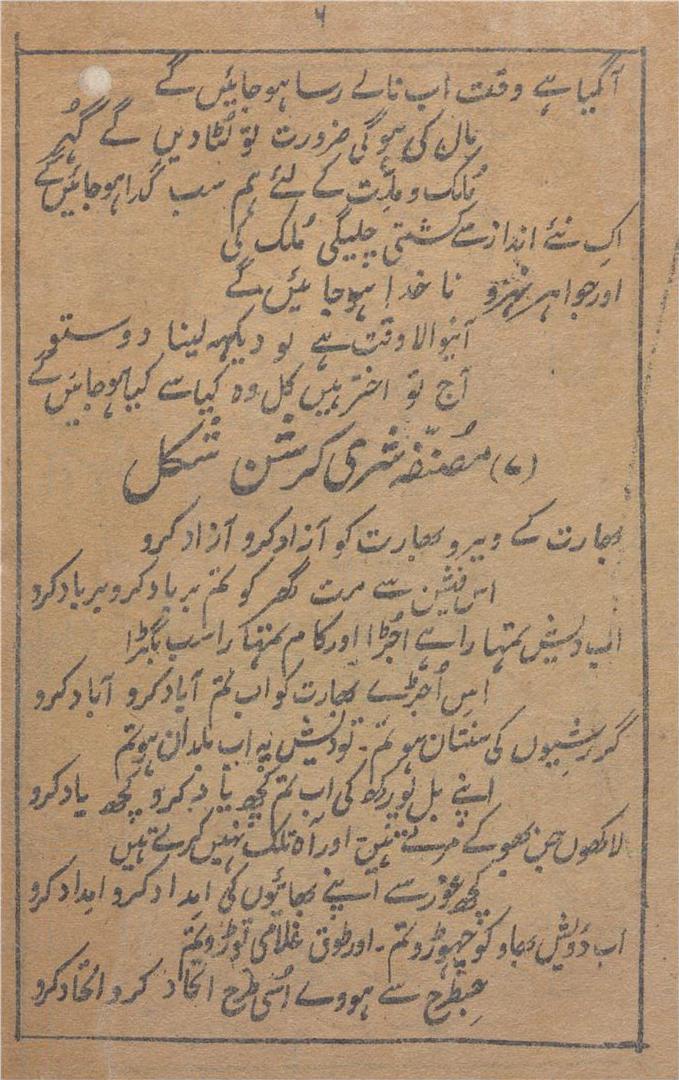 ۶
آگیا ہے وقت اب نالے رسا ہو جائیں گے
مال کی ہو گی ضرورت تو لٹا دیں گے گہر
مُلک و ملّت کے لئے ہم سب گدا ہو جائیں گے
اِک نئے انداز سے کشتی چلیگی مُلک کی
اور جواہر نہرو نا خدا ہو جائیں گے
آنیوالا وقت ہے تو دیکھ لینا دوستو
آج تو اختر ہیں کل وہ کیا سے کیا ہو جائیں گے
(۷) مُصنّفہ شری کرشن شکل
بھارت کے ویرو بھارت کو آزاد کرو آزاد کرو
اس فیشن سے مت گھر کو تم برباد کرو برباد کرو
اب دیش تمہارا ہے اُجڑا اور کام تمہارا سب بگڑا
اِس اُجڑے بھارت کو اب تم آباد کرو آباد کرو
گر رشیوں کی سنتان ہو تم۔ تو دیش پہ اب بلدان ہو تم
اپنے بل پورکھ کی اب تم کچھ یاد کرو کچھ یاد کرو
لاکھوں جن بھوکے مرتے ہیں اور آہ تلک نہیں کرتے ہیں
کچھ غور سے اپنے بھائیوں کی امداد کرو امداد کرو
اب دویش بھاو کو چھوڑو تم۔ اور طوق غلامی توڑو تم
جسطرح سے ہووے اُسی طرح اتحاد کرو اتحاد کرو